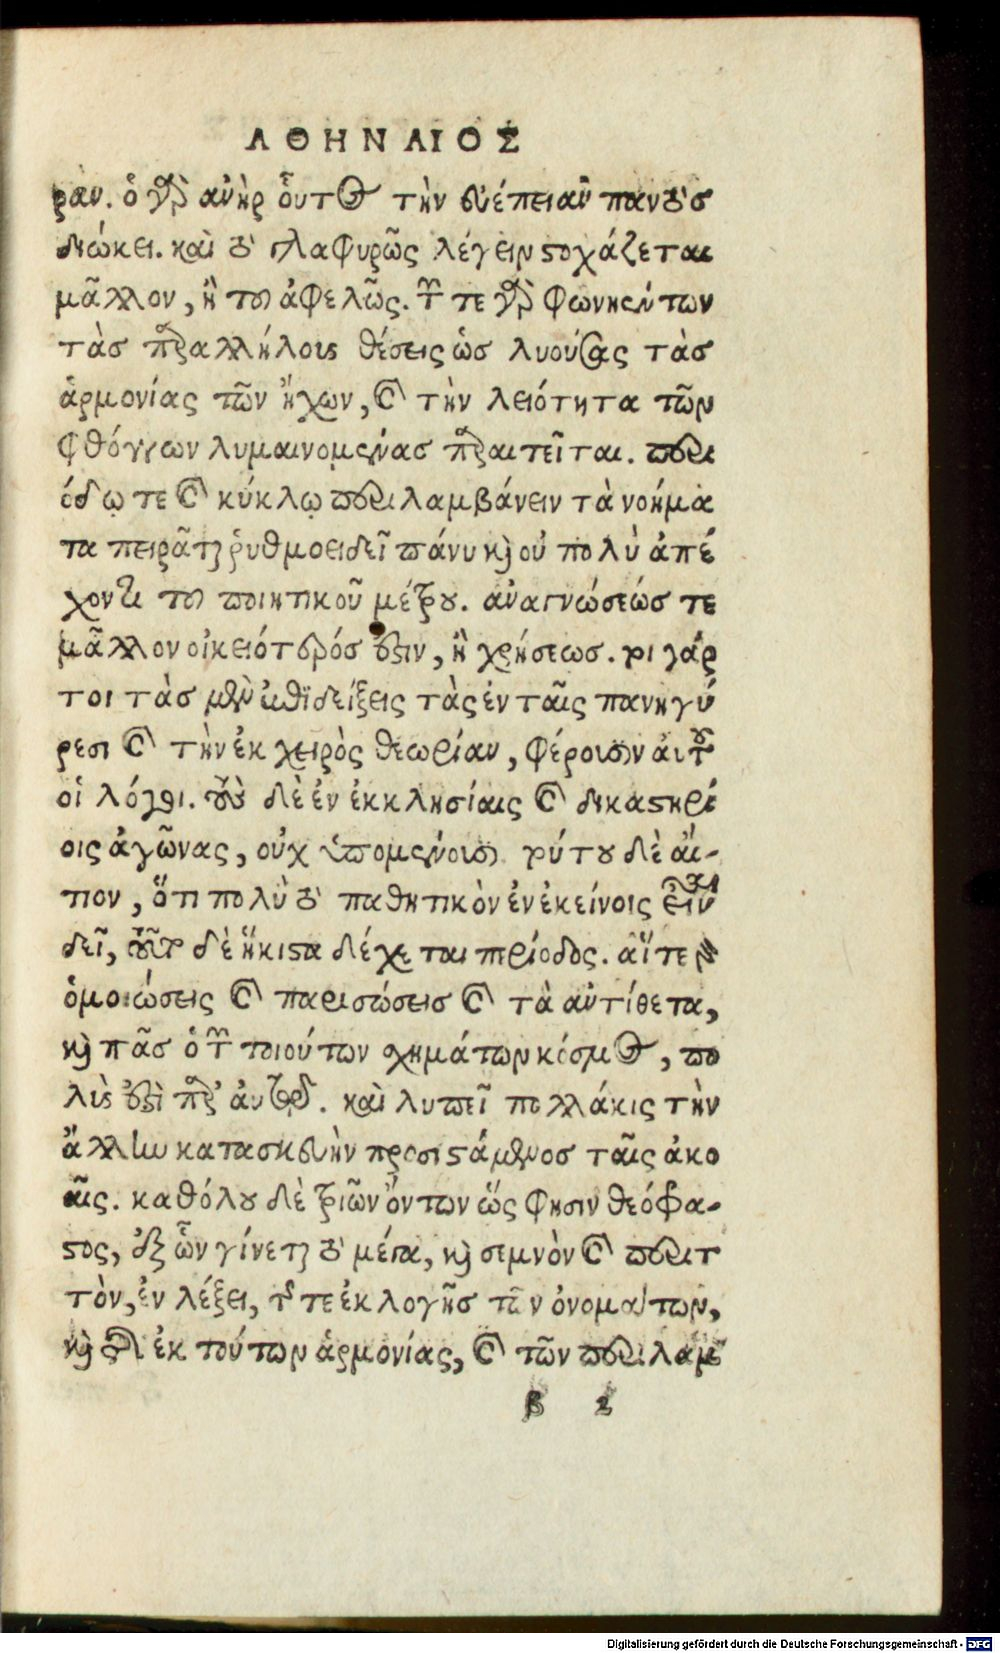 ΑΘΗΝΑΙΟΣ
ραν. ὁ γὰρ ἀνὴρ οὗτος τὴν εὐέπειαν παντὸς
διώκει. καὶ τὸ γλαφυρῶς λέγειν στοχάζεται
μᾶλλον, ἢ τὸ ἀφελῶς. τῶν τε γὰρ φωνηέντων
τὰς παραλλήλους θέσεις ὡς λυούσας τὰς
ἁρμονίας τῶν ἤχων, καὶ τὴν λειότητα τῶν
φθόγγων λυμαινομένας παραιτεῖται. περι
όδῳ τε καὶ κύκλῳ περιλαμβάνειν τὰ νοήμα
τα πειρᾶται ῥυθμοειδεῖ πάνυ καὶ οὐ πολὺ ἀπέ
χοντι τοῦ ποιητικοῦ μέτρου. ἀναγνώσεώς τε
μᾶλλον οἰκειότερός ἐστιν, ἢ χρήσεως. τοι γάρ
τοι τὰς μὲν ἐπιδείξεις τὰς ἐν ταῖς πανηγύ
ρεσι καὶ τὴν ἐκ χειρὸς θεωρίαν, φέρουσιν αὐτοῦ
οἱ λόγοι. τοὺς δὲ ἐν ἐκκλησίαις καὶ δικαστηρί
οις ἀγῶνας, οὐχ ὑπομένουσι. τούτου δὲ αἴ-
τιον, ὅτι πολὺ τὸ παθητικὸν ἐν ἐκείνοις εἶναι
δεῖ, τοῦτο δὲ ἥκιστα δέχεται περίοδος. αἵ τε
ὁμοιώσεις καὶ παρισώσεις καὶ τὰ ἀντίθετα,
καὶ πᾶς ὁ τῶν τοιούτων σχημάτων κόσμος, πο
λύς ἐστι παρ' αὐτῷ. καὶ λυπεῖ πολλάκις τὴν
ἄλλην κατασκευὴν προσιστάμενος ταῖς ἀκο
αῖς. καθόλου δὲ τριῶν ὄντων ὥς φησιν θεόφρα-
στος, ἐξ ὧν γίνεται τὸ μέγα, καὶ σεμνὸν καὶ περιτ
τὸν, ἐν λέξει, τῆς τε ἐκλογῆς τῶν ὀνομάτων,
καὶ τῆς ἐκ τούτων ἁρμονίας, καὶ τῶν περιλαμ
β 2
Digitalisierung gefördert durch die Deutsche Forschungsgemeinschaft - DFG